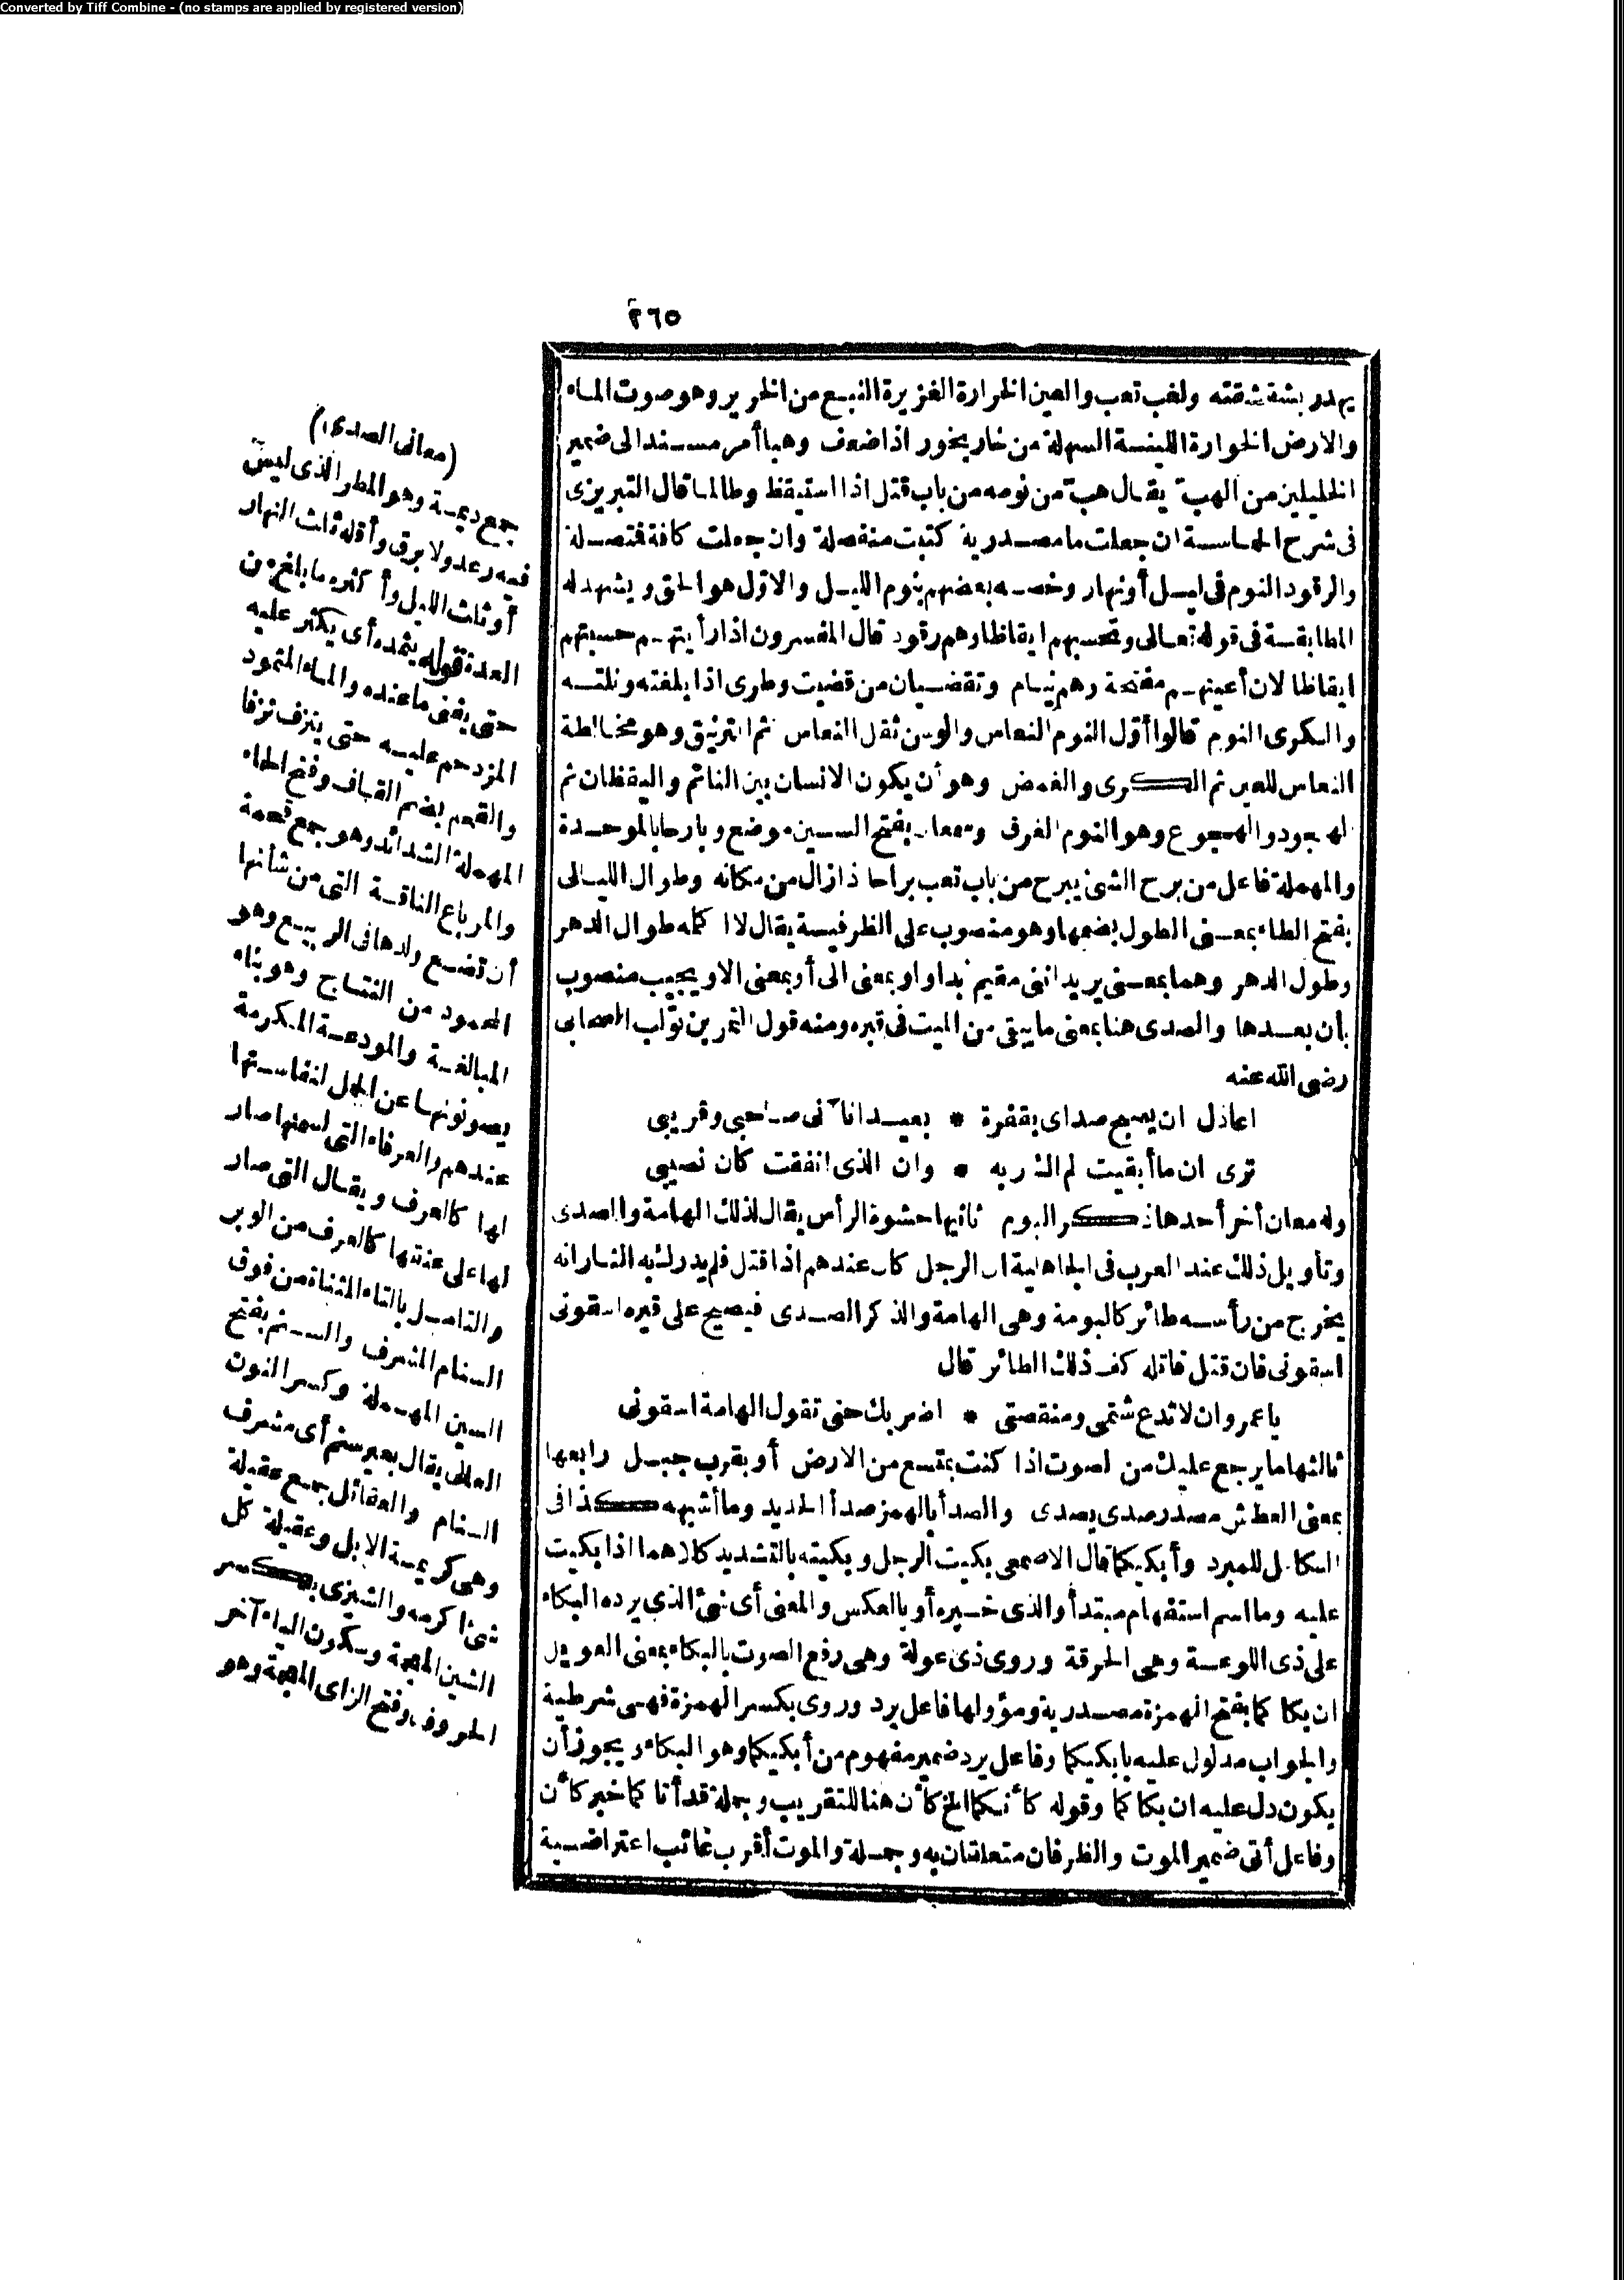 Converted by Tiff Combine - (no stamps are applied by registered version)
٢٦٥
يهدر بشقشقته ولغب تعب والعين الخرارة الغزيرة النبع من الخرير وهو صوت الماء
والارض الخوارة اللينسة السهلة من خار يخور اذا ضعف وهبا أمر مسند الى ضمير
الخليلين من الهب يقال هبّ من نومه من باب قتل اذا استيقظ وطالما قال التبريزى
فى شرح الحماسة ان جعلت ما مصدرية كتبت منفصلة وان جعلت كافة فتصلة
والرقود النوم فى ليل أو نهار وخصه بعضهم بنوم الليل والاوّل هو الحق ويشهد له
المطابقة فى قوله تعالى وتحسبهم ايقاظا وهم رقود قال المفسرون اذا رأيتهم حسبتهم
ايقاظا لان أعينهم مفتحة وهم نيام وتقضيان من قضيت وطرى اذا بلغته ونلته
والكرى النوم قالوا أوّل النوم النعاس والوسن ثقل النعاس ثم الترنيق وهو مخالطة
النعاس للعين ثم الكرى والغمض وهو أن يكون الانسان بين النائم واليقظان ثم
الهجود والهجوع وهو النوم الغرق وسمعان بفتح السين موضع وبارحا بالموحدة
والمهملة فاعل من برح الشئ يبرح من باب تعب براحا اذا زال من مكانه وطوال الليالى
بفتح الطاء بمعنى الطول بضمها وهو منصوب على الظرفية يقال لا اكلمه طوال الدهر
وطول الدهر وهما بمعنى يريد اننى مقيم أبدا واو بمعنى الى أو بمعنى الا ويجيب منصوب
بأن بعدها والصدى هنا بمعنى ما يبقى من الميت فى قبره ومنه قول النمر بن تولب الصحابى
رضى الله عنه
اعاذل ان يصبح صداى بقفرة * بعيدا نآنى صاحبى وقريبى
ترى ان ما أبقيت لم اك ربه * وان الذى انفقت كان نصيبى
وله معان أخر أحدها ذكر البوم ثانيها حشوة الرأس يقال لذلك الهامة والصدى
وتأويل ذلك عند العرب فى الجاهلية ان الرجل كان عندهم اذا قتل فلم يدرك به الثار انه
يخرج من رأسه طائر كالبومة وهى الهامة والذكر الصدى فيصيح على قبره اسقونى
اسقونى فان قتل قاتله كف ذلك الطائر قال
يا عمرو ان لا تدع شتمى ومنقصتى * اضربك حتى تقول الهامة اسقونى
ثالثها ما يرجع عليك من الصوت اذا كنت بمتسع من الارض أو بقرب جبل رابعها
بمعنى العطش مصدر صدى يصدى والصدأ بالهمز صدأ الحديد وما أشبهه كذا فى
الكامل للمبرد وأبكيكما قال الاصمعى بكيت الرجل وبكيته بالتشديد كلاهما اذا بكيت
عليه وما اسم استفهام مبتدأ والذى خبره أو بالعكس والمعنى أى شئ الذى يرده البكاء
على ذى اللوعة وهى الحرقة وروى ذى عولة وهى رفع الصوت بالبكاء بمعنى العويل
ان بكا كما بفتح الهمزة مصدرية ومؤولها فاعل يرد وروى بكسر الهمزة فهى شرطية
والجواب مدلول عليه بابكيكما وفاعل يرد ضمير مفهوم من أبكيكما وهو البكاء ويجوز أن
يكون دل عليه ان بكا كما وقوله كأنكما الخ كأن هنا للتقريب وجملة قد أتا كما خبر كأن
وفاعل أتى ضمير الموت والظرفان متعلقان به وجملة والموت أقرب غائب اعتراضية
(معانى الصدى)
جمع ديمة وهو المطر الذى ليس
فيه رعد ولا برق وأقله ثلث النهار
أو ثلث الليل وأكثره ما بلغ من
العدة قوله يثمده أى يكثر عليه
حتى يفنى ما عنده والماء المثمود
المزدحم عليه حتى ينزف نزفا
والقحم بضم القاف وفتح الحاء
المهملة الشدائد وهو جمع قحمة
والمرباع الناقة التى من شأنها
أن تضع ولدها فى الربيع وهو
المحمود من النتاج وهو بناء
المبالغة والمودعة المكرمة
يصونونها عن الحمل لنفاستها
عندهم والعرفاء التى لسمنها صار
لها كالعرف ويقال التى صار
لها على عنقها كالعرف من الوبر
والتامك بالتاء المثناة من فوق
السنام المشرف والسنم بفتح
السين المهملة وكسر النون
العالى يقال بعير سنم أى مشرف
السنام والعقائل جمع عقيلة
وهى كريمة الابل وعقيلة كل
شئ اكرمه والشيزى بكسر
الشين المعجمة وسكون الياء آخر
الحروف وفتح الزاى المعجمة وهو